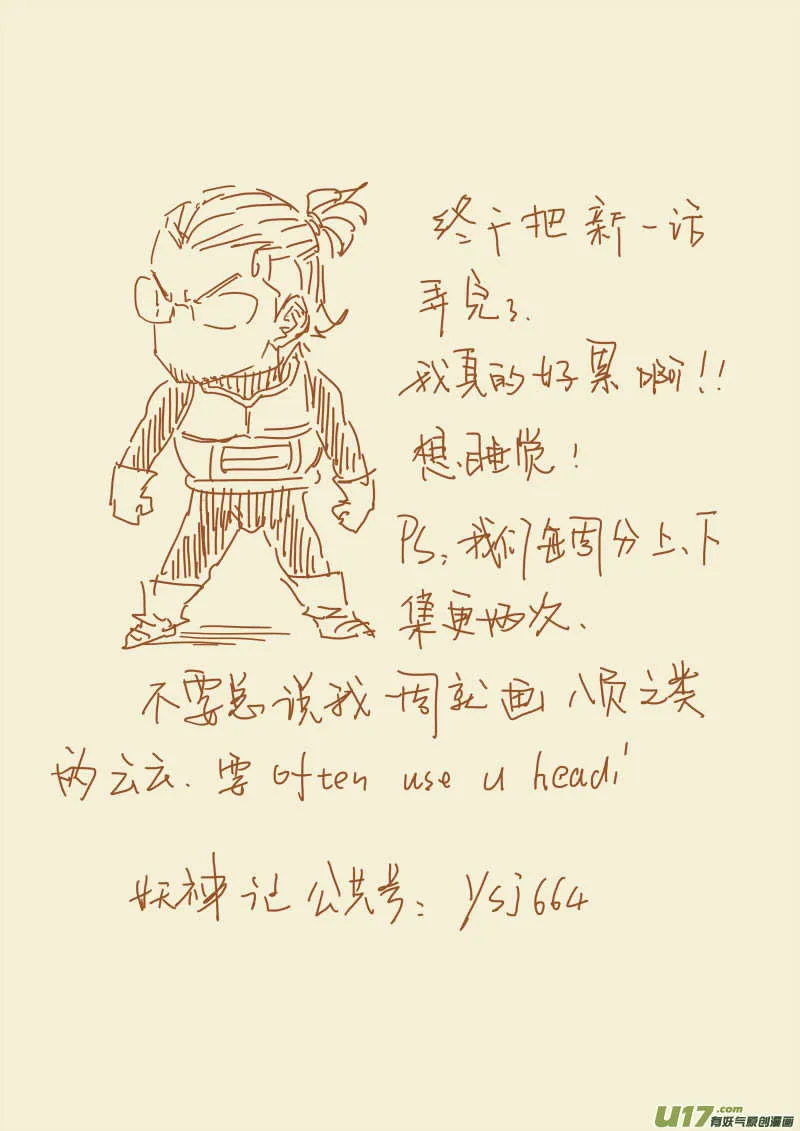 终于把新一话
弄完了.
我真的好累啊!!
想睡觉!
PS:我们每周分上、下
集更两次、
不要总说我一周就画八页之类
的云云.要often use u head!
妖神记公共号:ysj664
U17.com
有妖气原创漫画